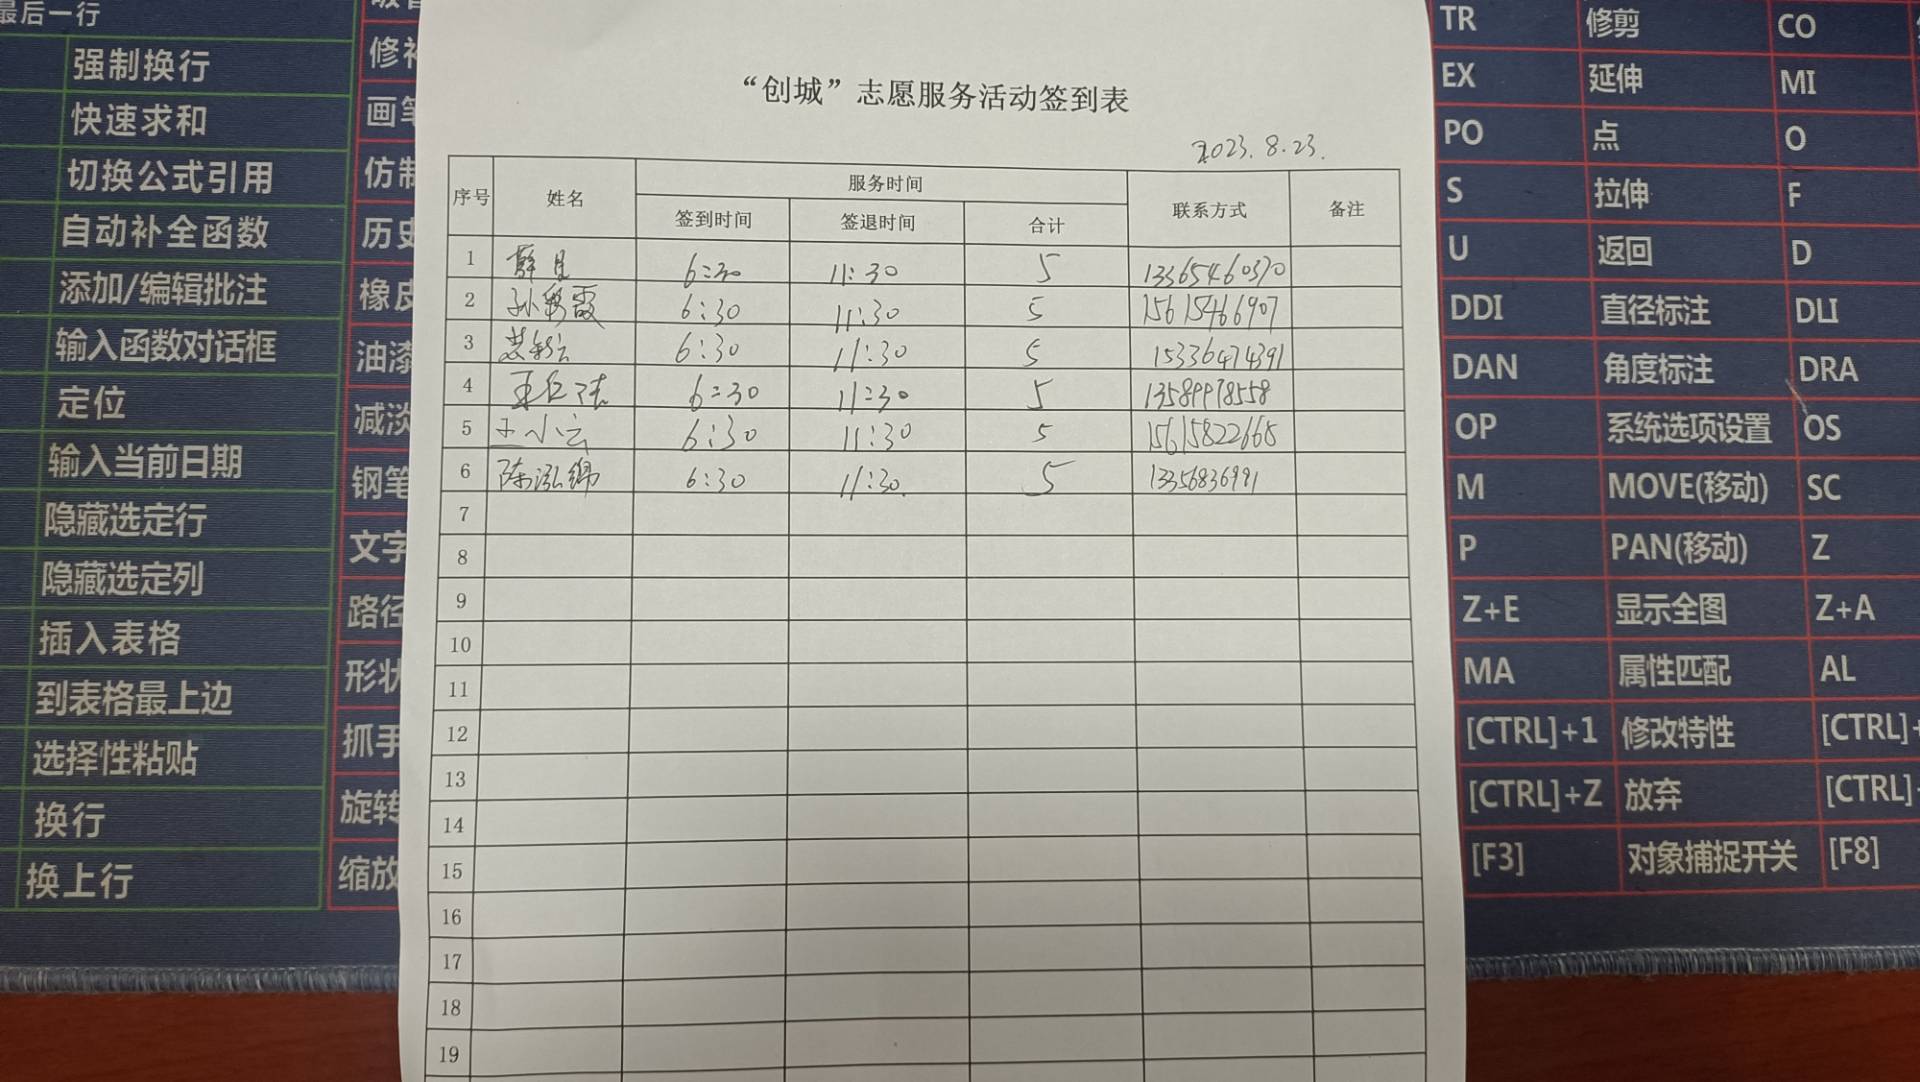 最后一行
强制换行
快速求和
切换公式引用
自动补全函数
添加/编辑批注
输入函数对话框
定位
输入当前日期
隐藏选定行
隐藏选定列
插入表格
到表格最上边
选择性粘贴
换行
换上行
修补
画笔
仿制
历史
橡皮
油漆
减淡
钢笔
文字
路径
形状
抓手
旋转
缩放
“创城”志愿服务活动签到表
2023.8.23.
序号 姓名 服务时间 联系方式 备注
签到时间 签退时间 合计
1 6:30 11:30 5 13365460370
2 孙彩霞 6:30 11:30 5 15615466907
3 6:30 11:30 5 15336474391
4 6:30 11:30 5 13589998558
5 王小云 6:30 11:30 5 15615822668
6 陈泓锦 6:30 11:30. 5 13356836991
7
8
9
10
11
12
13
14
15
16
17
18
19
TR 修剪 CO
EX 延伸 MI
PO 点 O
S 拉伸 F
U 返回 D
DDI 直径标注 DLI
DAN 角度标注 DRA
OP 系统选项设置 OS
M MOVE(移动) SC
P PAN(移动) Z
Z+E 显示全图 Z+A
MA 属性匹配 AL
[CTRL]+1 修改特性 [CTRL]+
[CTRL]+Z 放弃 [CTRL]
[F3] 对象捕捉开关 [F8]